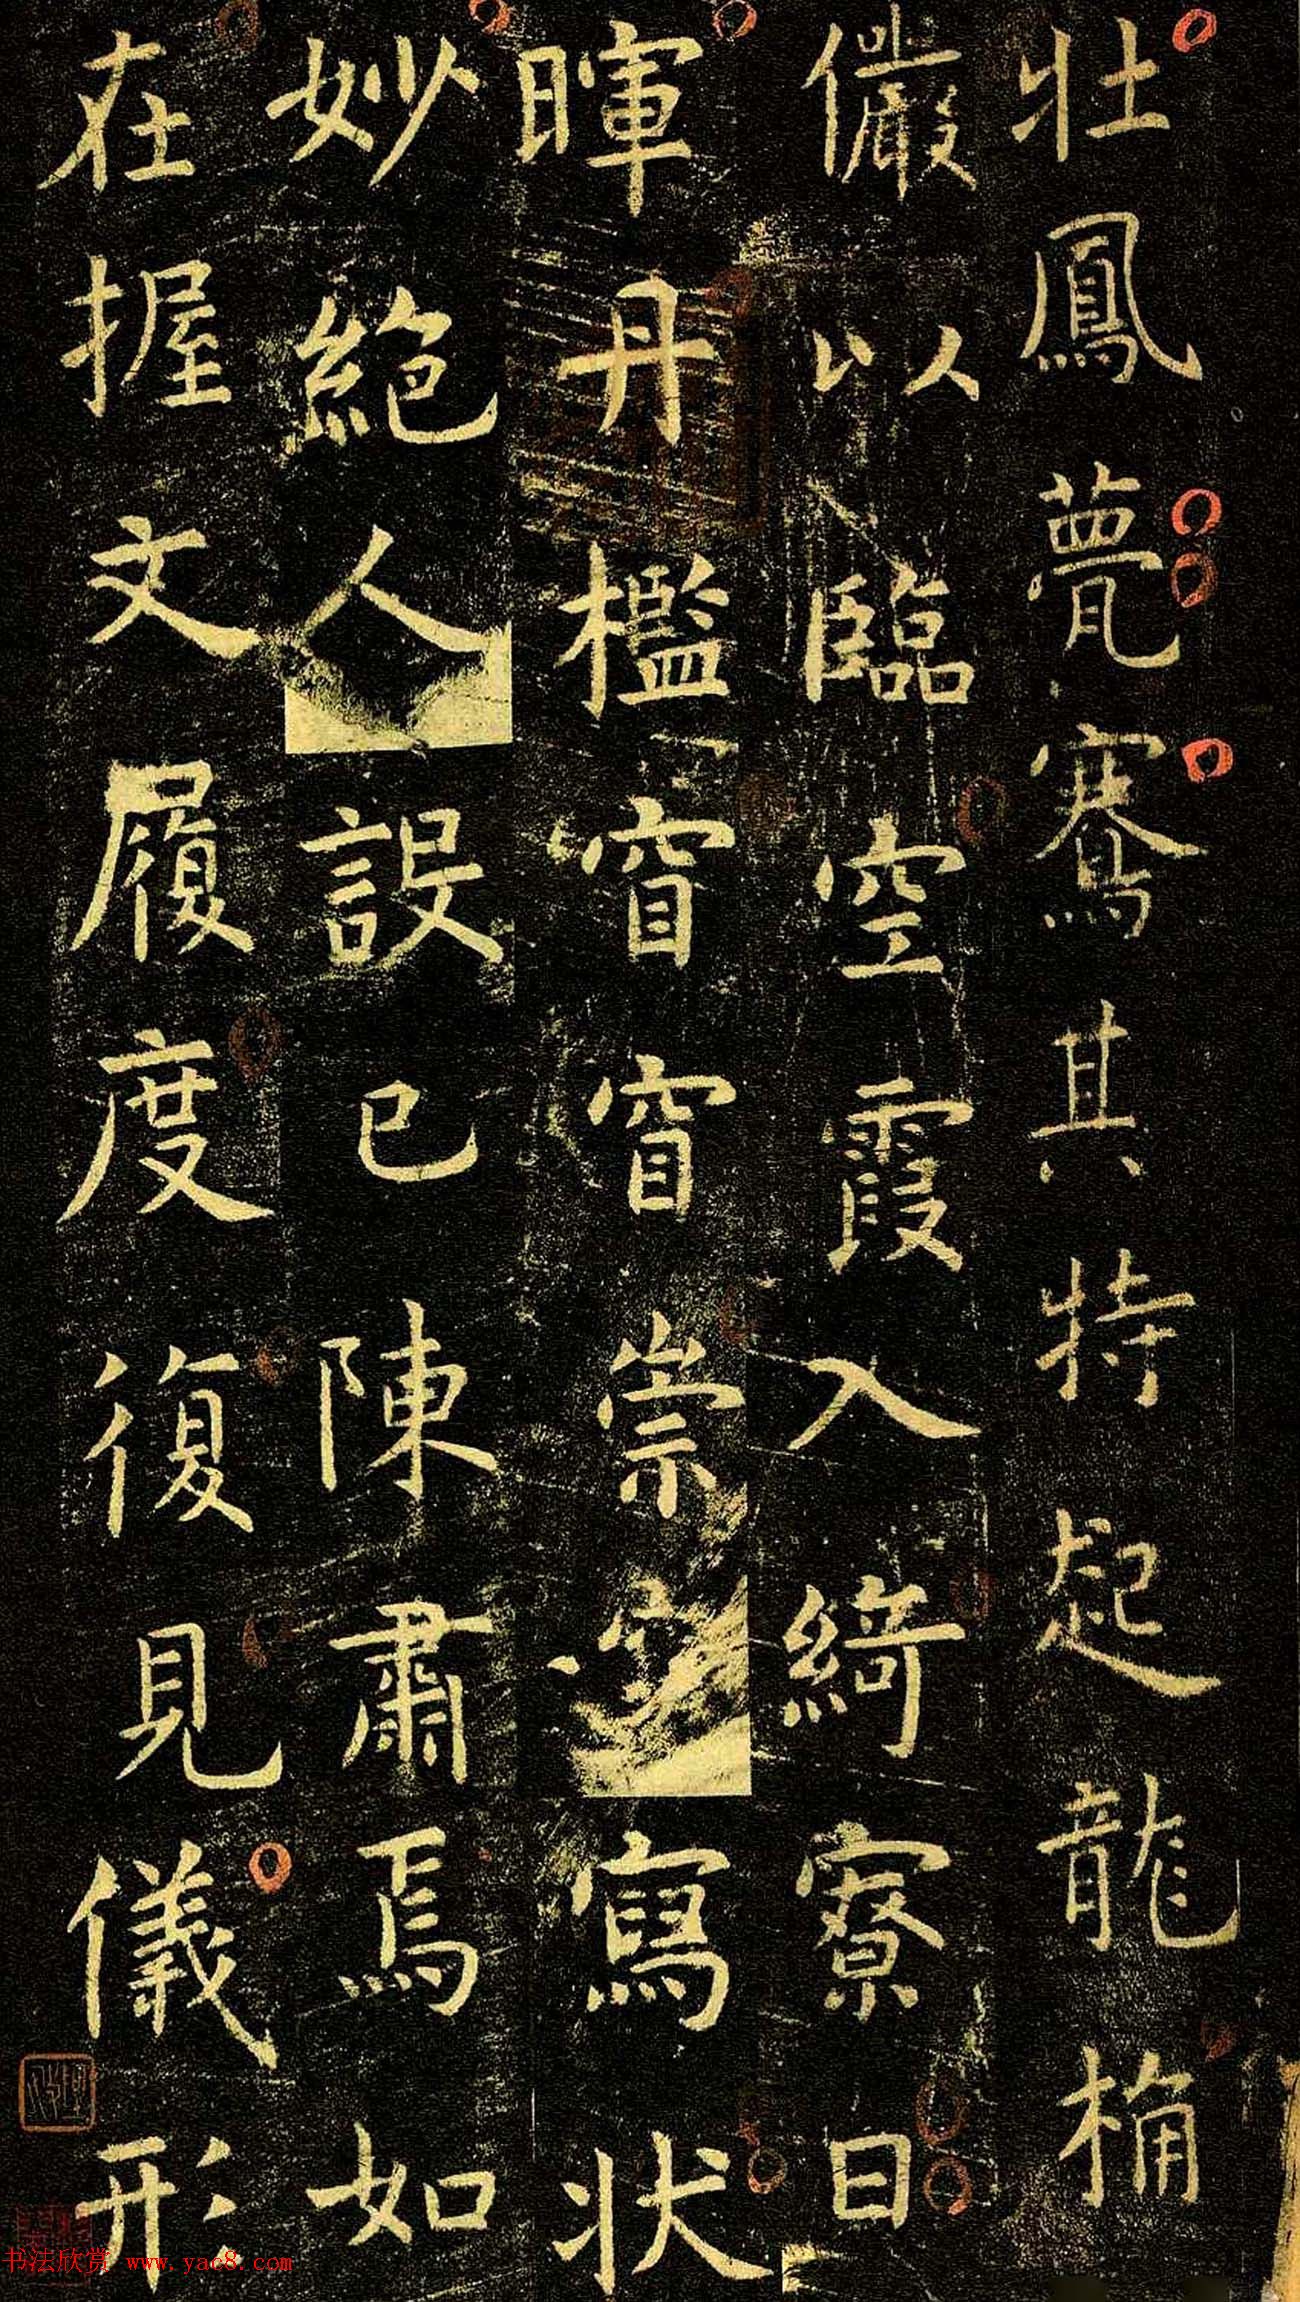 壯鳳甍騫其特起龍桷
儼以臨空霞入綺寮日
暉丹檻窅窅崇寫狀
妙絕人設已陳肅焉如
在握文履度復見儀形
书法欣赏 www.yac8.com